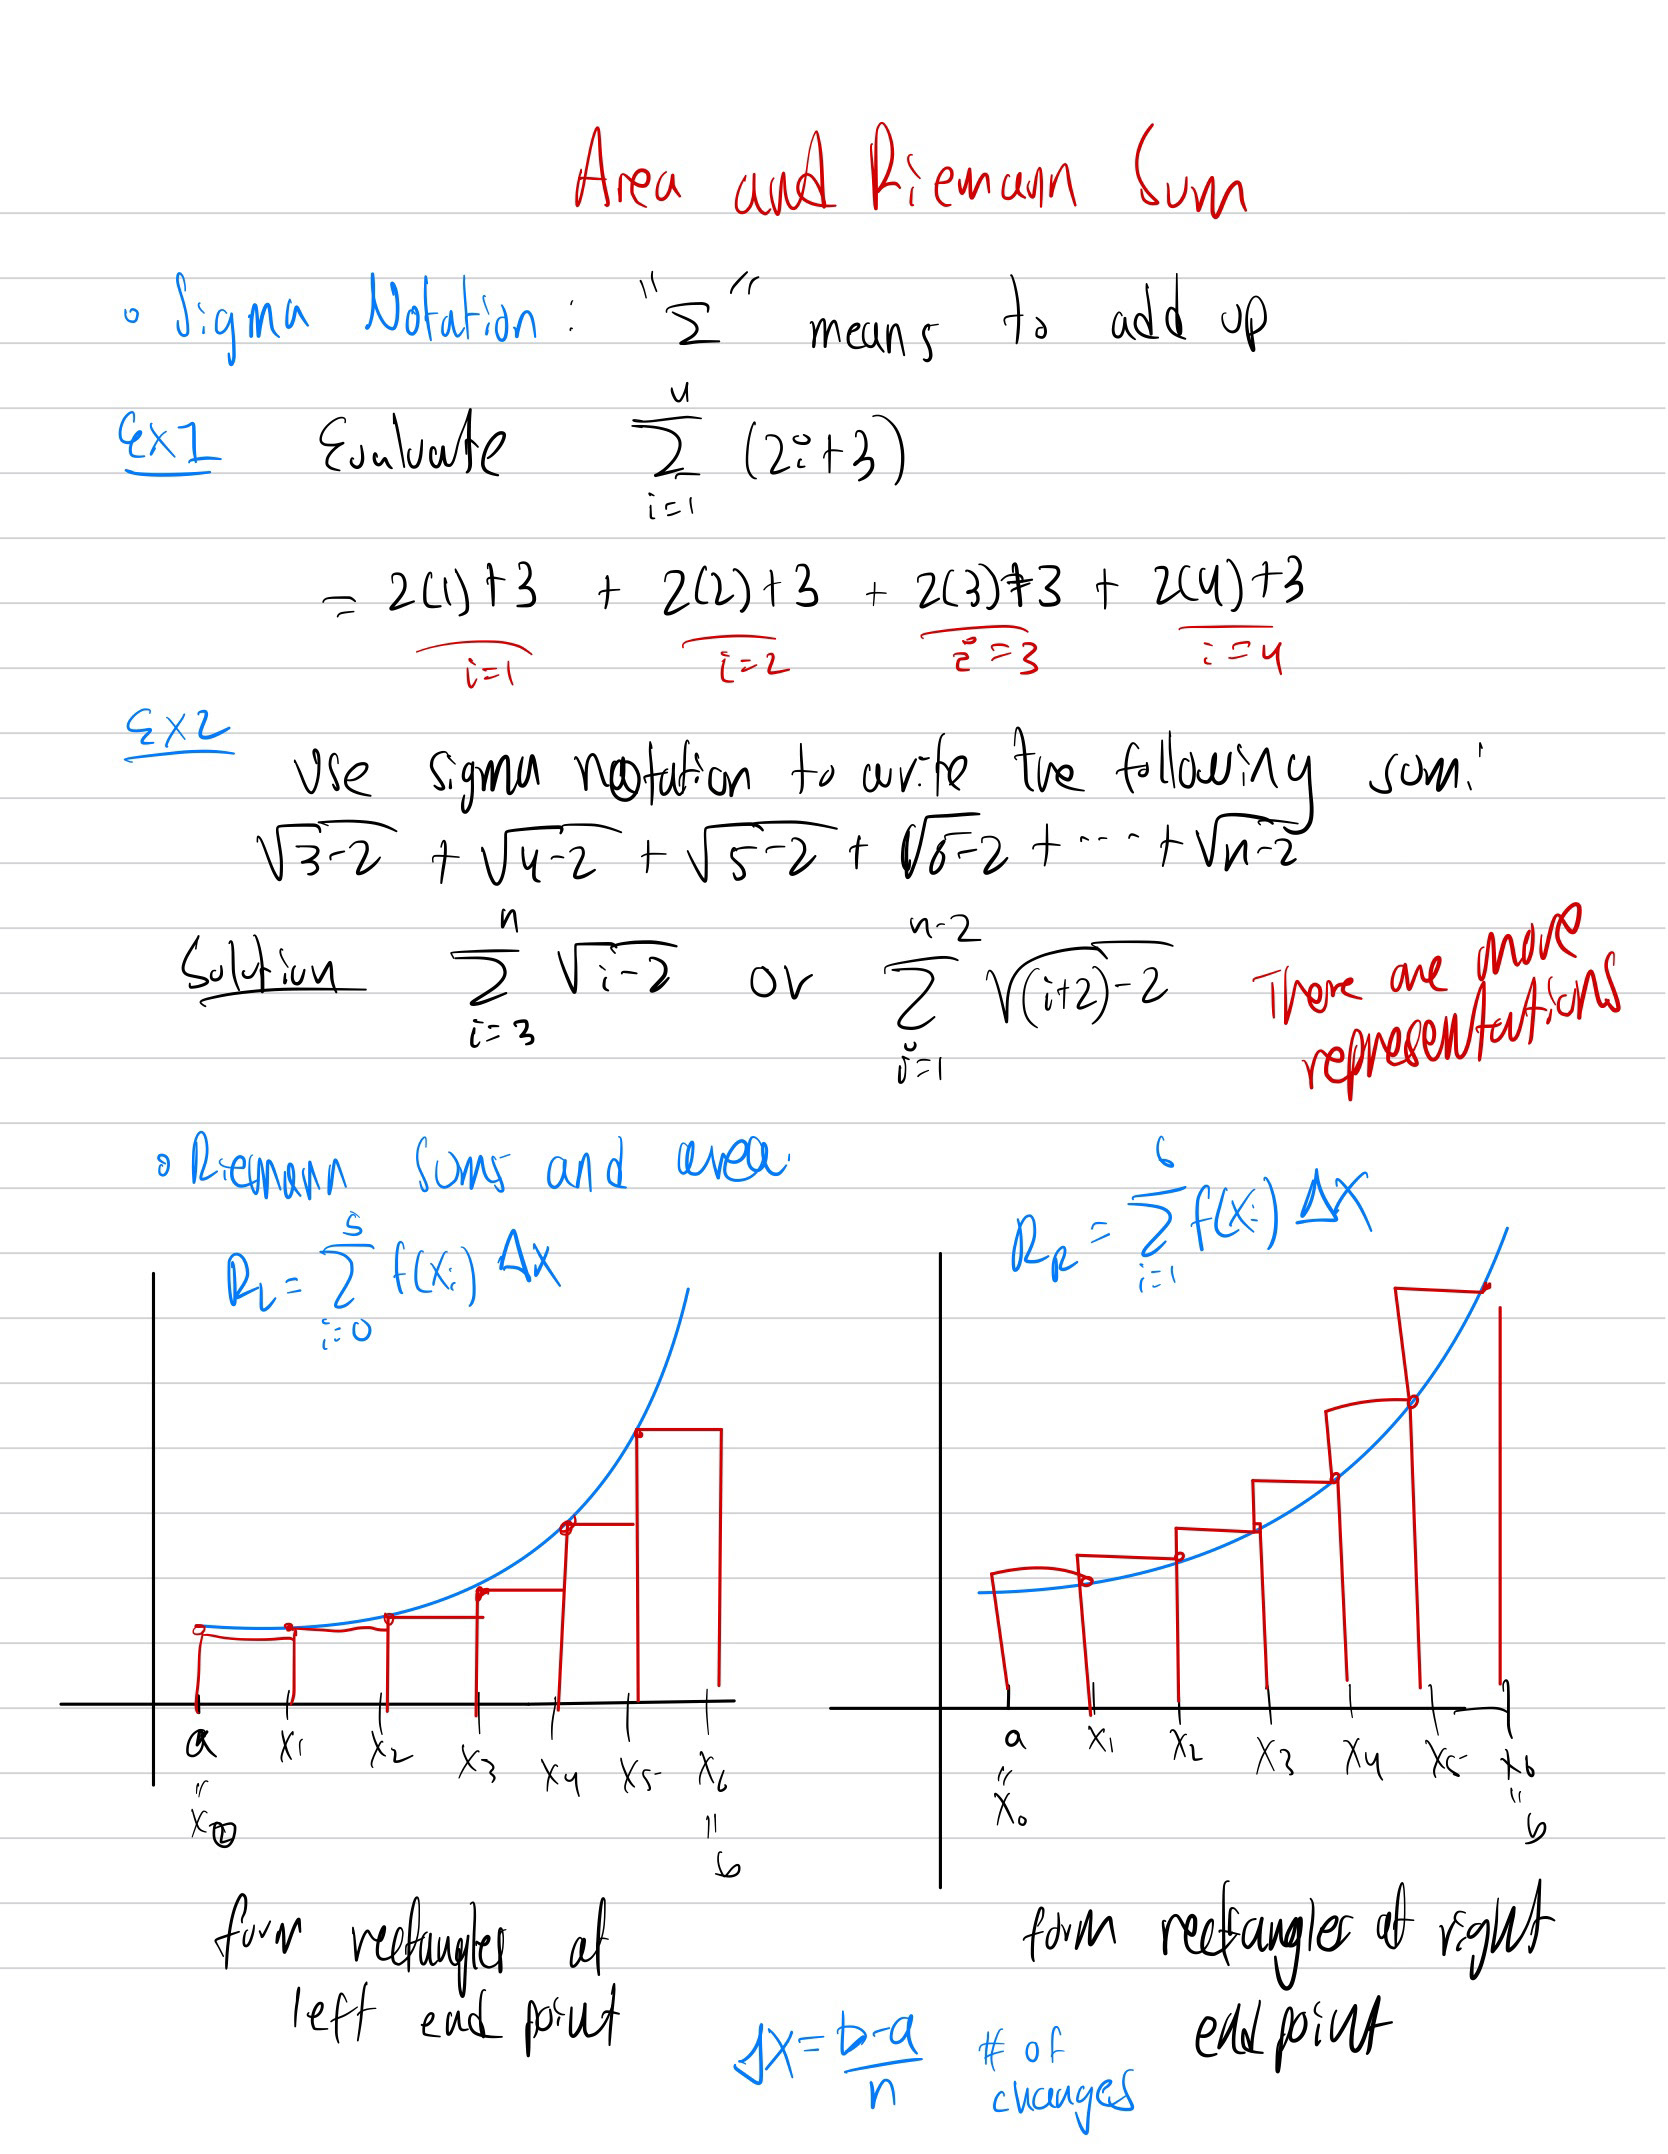 Area and Riemann Sum
◦ Sigma Notation: "Σ" means to add up
4
Ex1 Evaluate Σ (2i+3)
i=1
= 2(1)+3 + 2(2)+3 + 2(3)+3 + 2(4)+3
i=1 i=2 i=3 i=4
Ex2
Use sigma notation to write the following sum:
√3-2 + √4-2 + √5-2 + √6-2 + ... + √n-2
n n-2
Solution Σ √i-2 or Σ √(i+2)-2 There are more
i=3 i=1 representations
◦ Riemann Sums and area:
5
R_L = Σ f(x_i) Δx
i=0
6
R_R = Σ f(x_i) Δx
i=1
a x₁ x₂ x₃ x₄ x₅ x₆
" "
x₀ b
a x₁ x₂ x₃ x₄ x₅ x₆
" "
x₀ b
form rectangles at
left end point
form rectangles at right
end point
Δx = b-a # of
n changes